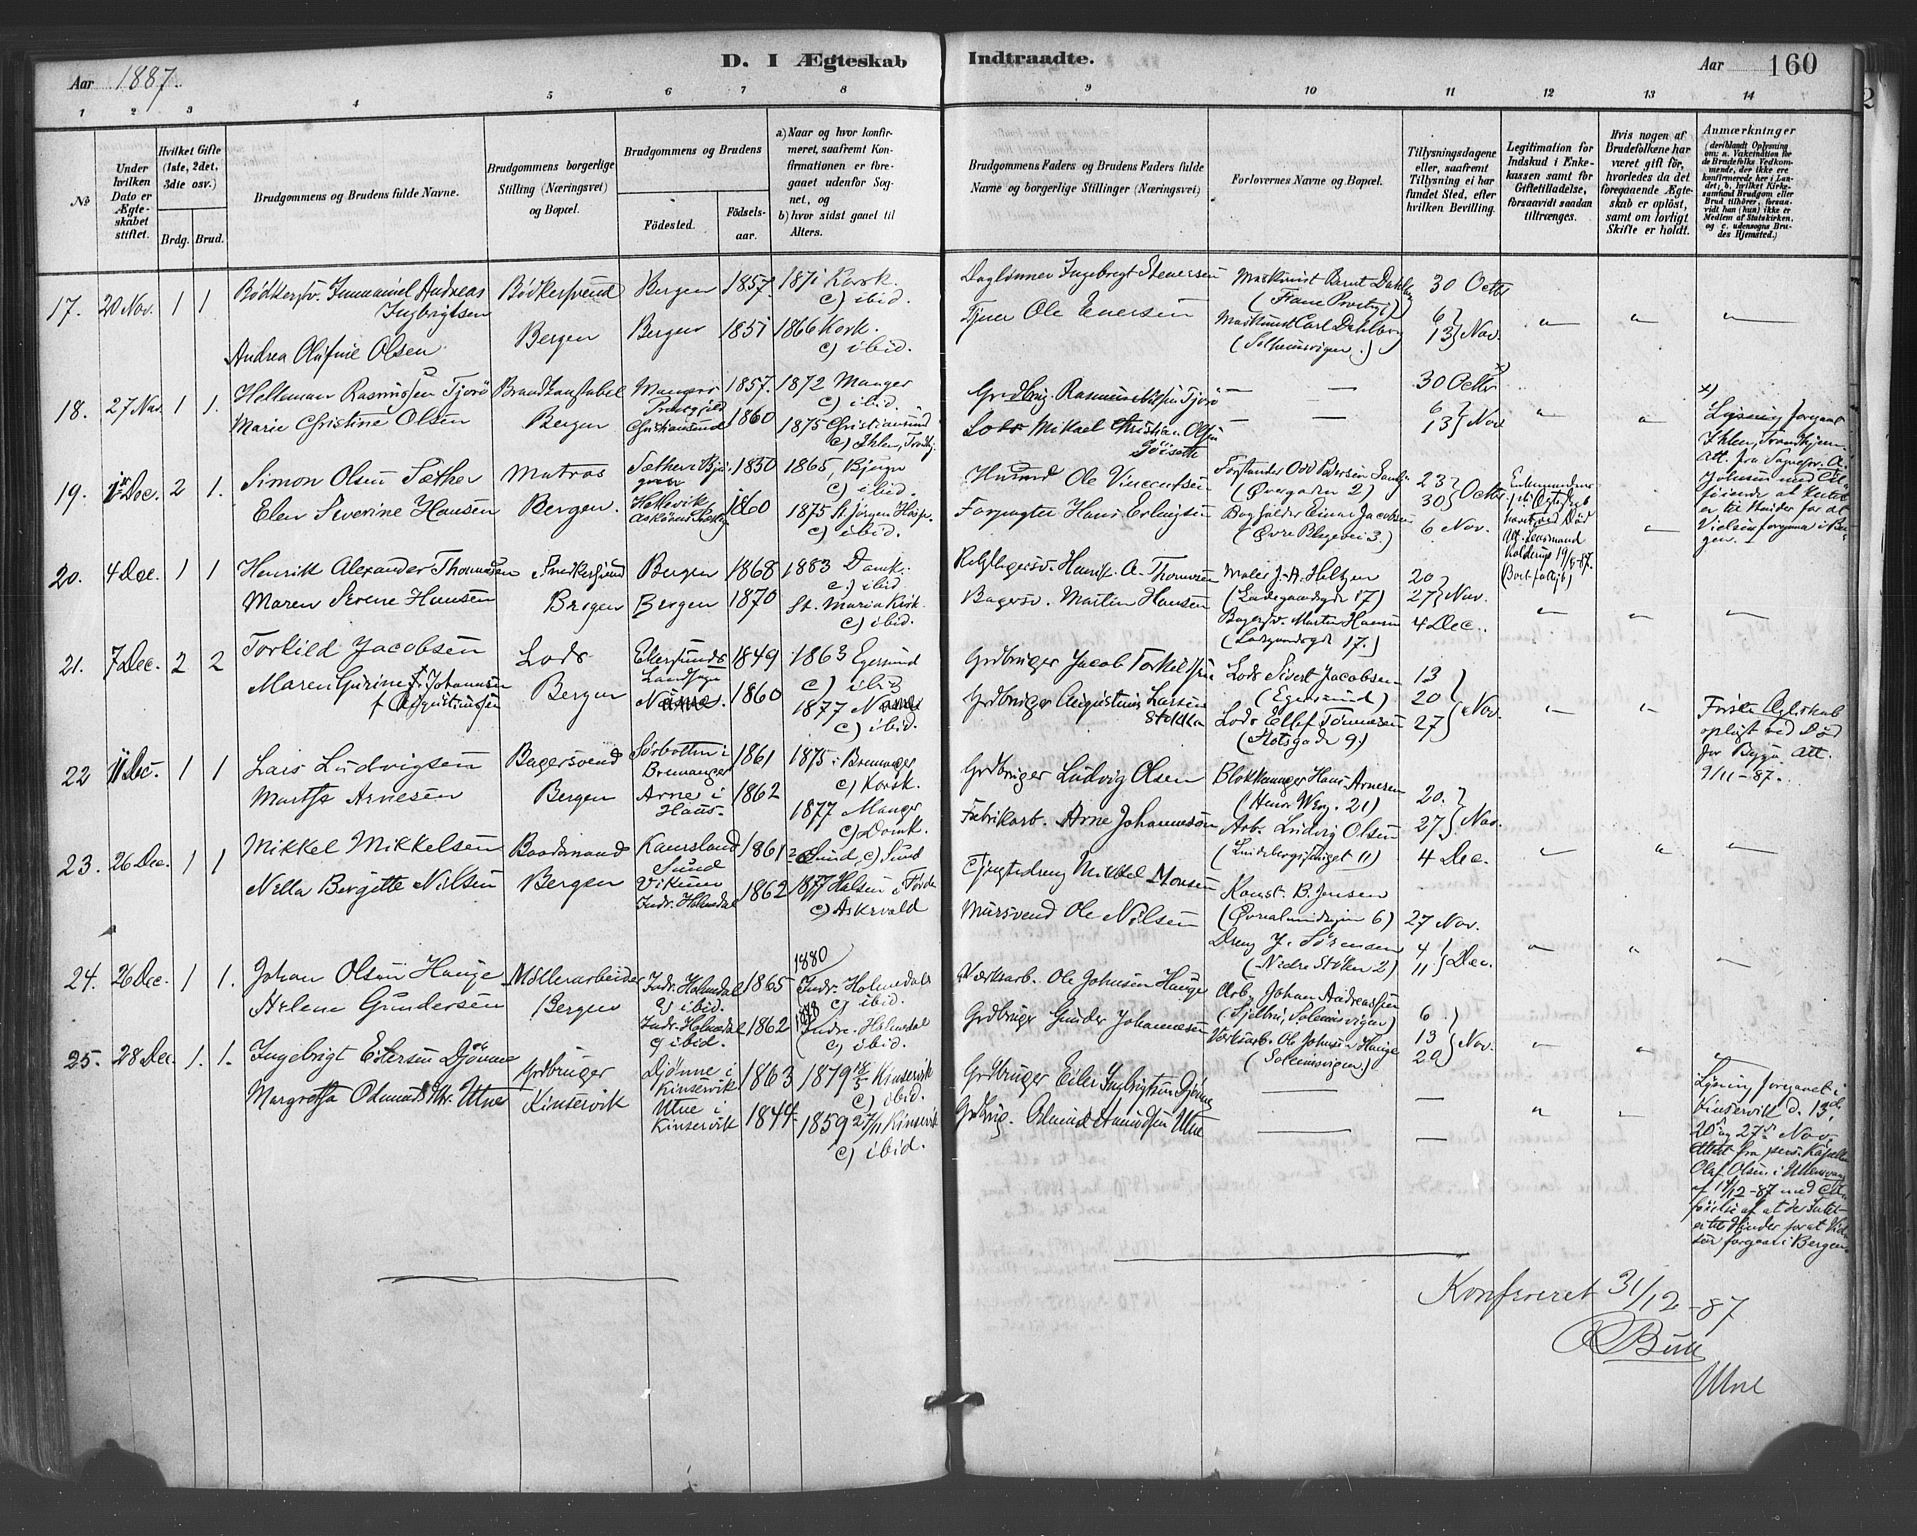 Aar 1887.
D. I Ægteskab Indtraadte.
Aar 160
1 2 3 4 5 6 7 8 9 10 11 12 13 14
No
Under hvilken Dato er Ægteskabet stiftet.
Hvilket Gifte (1ste, 2det, 3die osv.)
Brdg. Brud.
Brudgommens og Brudens fulde Navne.
Brudgommens borgerlige Stilling (Næringsvei) og Bopæl.
Brudgommens og Brudens
Fødested.
Fødselsaar.
a) Naar og hvor konfirmeret, saafremt Konfirmationen er foregaaet udenfor Sognet, og
b) hvor sidst gaaet til Alters.
Brudgommens Faders og Brudens Faders fulde Navne og borgerlige Stillinger (Næringsvei)
Forlovernes Navne og Bopæl.
Tillysningsdagene eller, saafremt Tillysning ei har fundet Sted, efter hvilken Bevilling.
Legitimation for Indskud i Enkekassen samt for Giftetilladelse, forsaavidt saadan tiltrænges.
Hvis nogen af Brudefolkene har været gift før, hvorledes da det foregaaende Ægteskab er opløst, samt om lovligt Skifte er holdt.
Anmærkninger
(deriblandt Oplysning om: a. Vakcination for de Brudefolks Vedkommende, der ikke ere konfirmerede her i Landet; b. hvilket Kirkesamfund Brudgom eller Brud tilhører, forsaavidt han (hun) ikke er Medlem af Statskirken, og c. udensogns Brudes Hjemsted.)
17. 20 Nov. 1 1
Bødkersv. Immaniel Andreas Ingbrigtsen
Andrea Olufine Olsen
Bødkersvend
Bergen
Bergen 1857. 1871 Korsk. c) ibid.
Bergen 1851 1866 Korsk. c) ibid.
Daglønner Ingebrigt Stenersen
Tjener Ole Eversen
Maskinist Bernt Dahlberg (Fane Prestgj)
Maskinist Carl Dahlberg (Solheimsvigen.)
30 Octb
6 13 Nov.
18. 27 Nov. 1 1.
Helleman Rasmussen Tjorø
Marie Christine Olsen
Brandkonstabel
Bergen
Mangers Prestegjeld 1857. 1872 Manger c) ibid.
Christiansund 1860 1875 Christiansund c) Ihlen, Trondhj.
Grdbrug. Rasmus Nilsen Tjorø
Lods Mikael Kristian Olsen
30 Octbr x)
6 13 Nov
x) Lysning foregaaet Ihlen, Trondhjem
Att. fra Sognepr. A.
19. 1ste Dec. 2 1.
Simon Olsen Sæther
Elen Severine Hansen
Matros
Bergen.
1850 1865, Bjugn c) ibid.
1860 1875 St. Jørgen Hosp. c) ibid.
Husmd Ole Vincentsen
Forpagter Hans Erlingsen
Forstander Odd Pedersen (Øvregaden 2)
Bogholder Einar Jacobsen (Øvre Blegevei 3.)
23 30 Octbr
6 Nov.
20. 4 Dec. 1 1
Henrik Alexander Thomassen
Maren Serene Hansen
Snedkersvend
Bergen
Bergen 1868 1883 Domk. c) ibid.
Bergen 1870 St. Maria Kirk. c) ibid.
Bagersv. Martin Hansen
Maler J. A. Holtzen (Ladegaardsgd 17)
Bagersv. Martin Hansen (Ladegaardsgd 17.)
20 27 Nov.
4 Dec.
21. 7 Dec. 2 2
Torkild Jacobsen
Maren Gurine f. Johannesen
f. Augustinussen
Lods
Bergen
Ekersunds Landsogn 1849 1863 Egersund c) ibid
1860 1877 c) ibid.
Grdbruger Jacob Torkildsen
Grdbruger Augustinus Larsen Stokka
Lods Sivert Jacobsen (Egersund)
Lods Ellef Tønnesen (Slotsgade 9.)
13 20 27 Nov.
Første Ægteskab opløst ved Død
for Begge. Att. 9/11-87.
22 11 Dec. 1 1
Lars Ludvigsen
Martha Arnesen
Bagersvend
Bergen
Sørbotten i Bremanger 1861 1875 i Bremanger c) Korsk.
Arne i Haus. 1862 1877 Manger c) Domk.
Grdbruger Ludvig Olsen
Fabrikarb. Arne Johannesøn
Blokkmager Hans Arnesen (Henr Werg. 21)
Arb. Ludvig Olsen
20. 27 Nov.
4 Dec.
23. 26 Dec. 1 1
Mikkel Mikkelsen
Nella Bergitte Nilsen
Baadsmand
Bergen
Kausland Sund 1861 Sund, c) Sund
Vikum Indr. Holmedal 1862 1877 Halsen i Førde c) Askevold
Mikkel Monsen
Mursvend Ole Nilsen
Konst. B. Jensen
Dreng J. Sørensen
27 Nov.
4 11 Dec.
24. 26 Dec. 1 1.
Johan Olsen Hauge
Helene Gundersen
Møllerarbeider
Bergen
Indr. Holmedal c) ibid. 1865 1880 Indr. Holmedal c) ibid.
Indr. Holmedal c) ibid. 1862 1878 Indre. Holmedal c) ibid.
Værksarb. Ole Johnsen Hauge
Grdbruger Gunder Johannesen
Arb. Johan Andreassen
Værksarb. Ole Johnsen Hauge (Solemsvigen)
6 13 20 Nov.
25. 28 Dec. 1. 1.
Ingebrigt Eilersen Djønne
Margretha Odmundsdtr. Utne
Grdbruger
Kinservik
Djønne i Kinservik 1863 1879 18/5 Kinservik c) ibid.
Utne i Kinservik 1844. 1859 27/11 Kinservik c) ibid.
Grdbruger Eiler Ingbrigtsen Djønne
Grdbrug. Odmund Amundsen Utne
Lysning foregaaet i Kinservik d. 13de,
20de og 27de Nov.
Attest fra pers. Kapellan
Olaf Olsen i Ullensvang
af 17/12-87 med Tilføielse af at der Intet
er til Hinder for at Vielsen foregaar i Bergen.
Konfereret 31/12-87
Bull
Utne